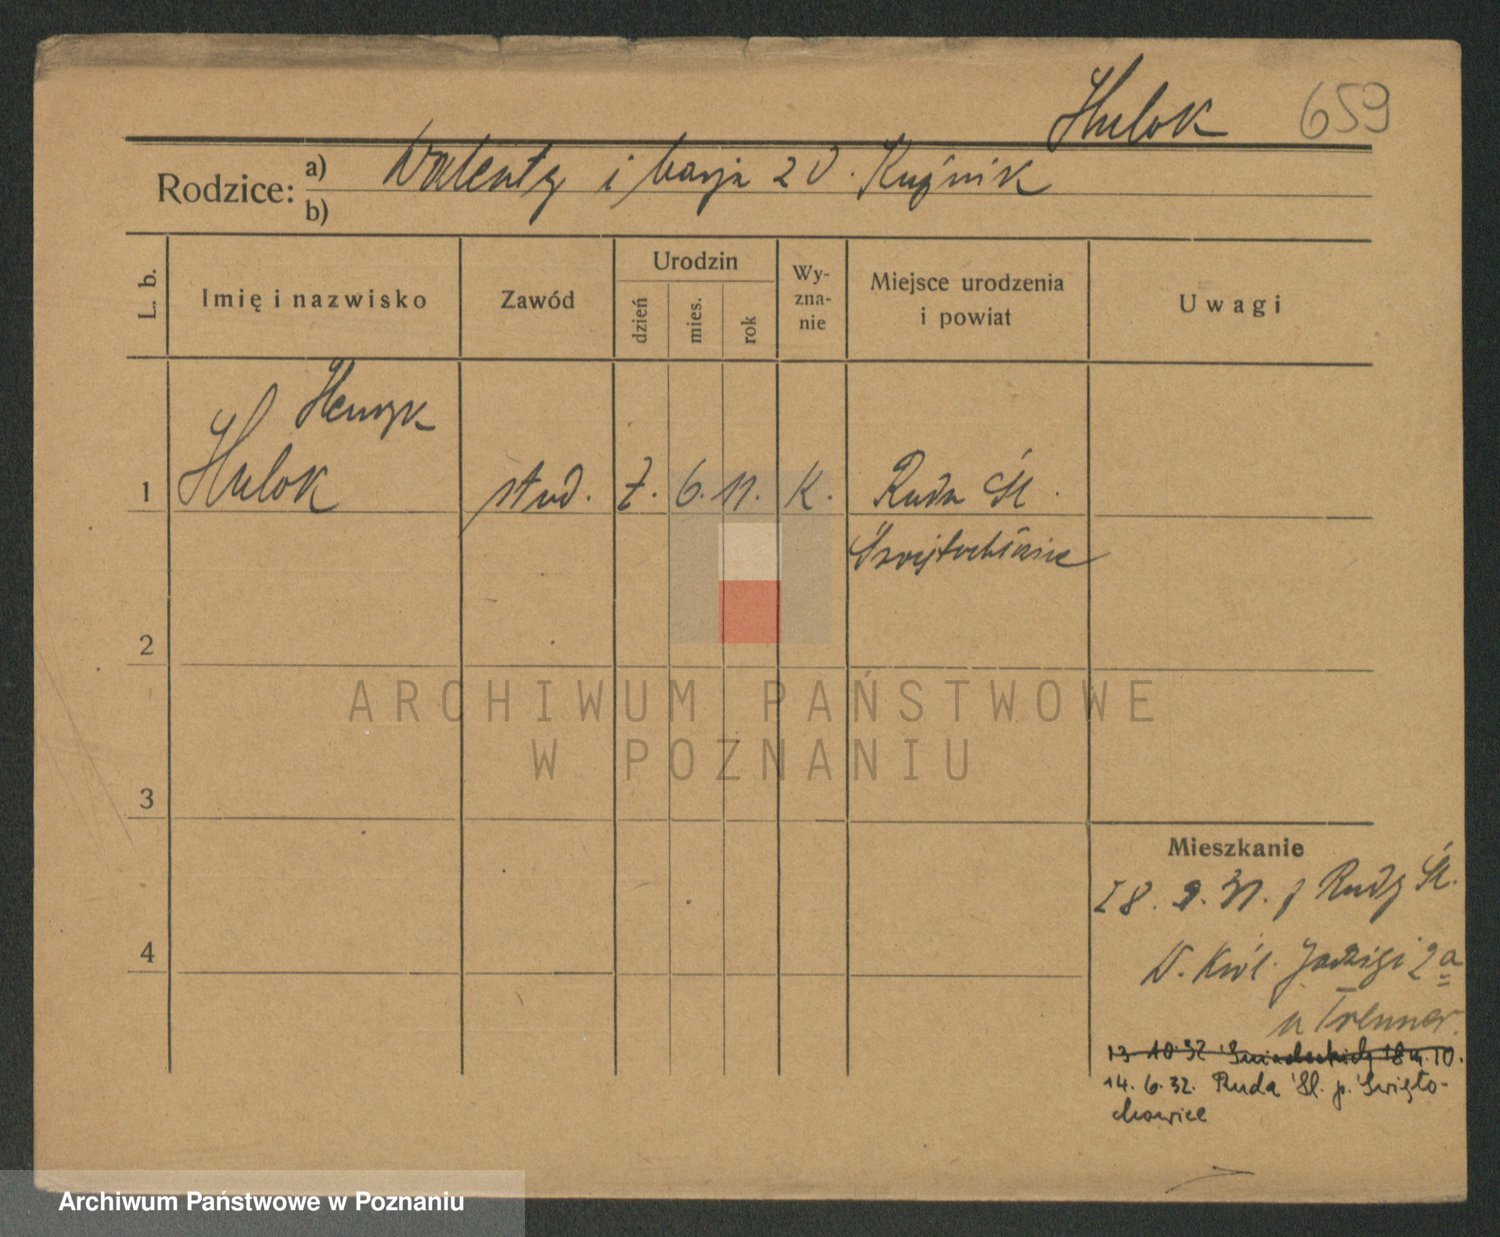 Hulok 659
Rodzice: a) Walenty i Marja z D. Kuźnik
b)
L. b. Imię i nazwisko Zawód Urodzin dzień mies. rok Wy-zna-nie Miejsce urodzenia i powiat Uwagi
Henryk
1 Hulok stud. 7. 6. 11. K. Ruda Śl.
Świętochłowice
2
ARCHIWUM PAŃSTWOWE
W POZNANIU
3
Mieszkanie
28. 9. 31. z Rudy Śl.
4
W. Król. Jadwigi 2a
u Trenner
13 10 32 Śniadeckich 18 m. 10.
14. 6. 32. Ruda Śl. p. Święto-
chowice
Archiwum Państwowe w Poznaniu